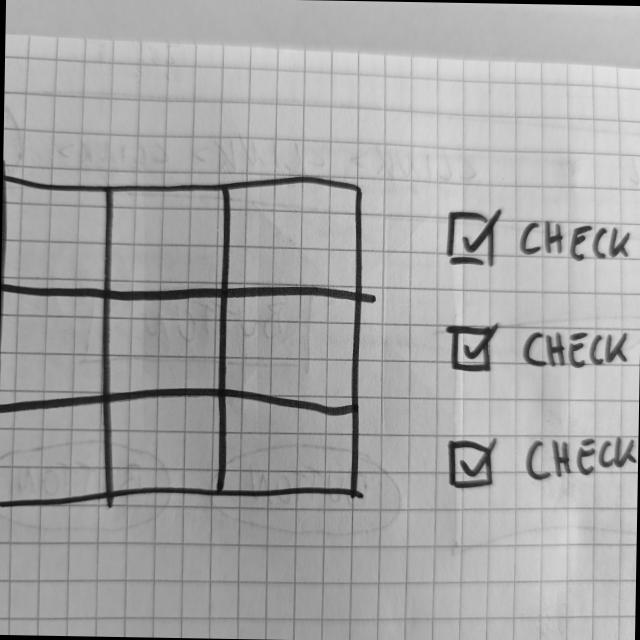 CHECK
CHECK
CHECK